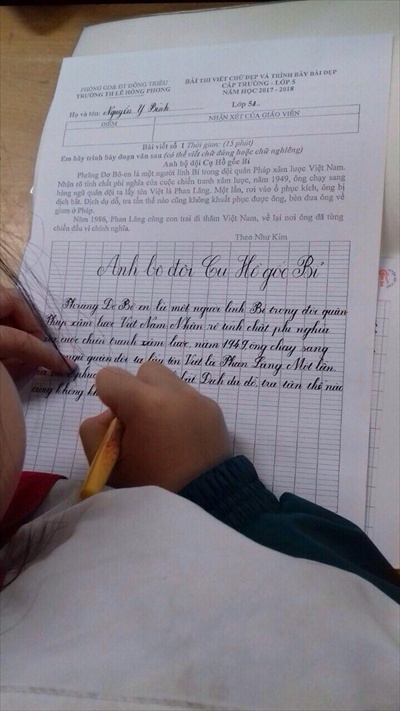 PHÒNG GD& ĐT ĐÔNG TRIỀU
TRƯỜNG TH LÊ HỒNG PHONG
BÀI THI VIẾT CHỮ ĐẸP VÀ TRÌNH BÀY BÀI ĐẸP
CẤP TRƯỜNG - LỚP 5
NĂM HỌC 2017 - 2018
Họ và tên: Nguyễn Y Bình Lớp 5
ĐIỂM NHẬN XÉT CỦA GIÁO VIÊN
Bài viết số 1 Thời gian: (15 phút)
Em hãy trình bày đoạn văn sau (có thể viết chữ đứng hoặc chữ nghiêng)
Anh bộ đội Cụ Hồ gốc Bỉ
Phrăng Đơ Bô-en là một người lính Bỉ trong đội quân Pháp xâm lược Việt Nam.
Nhận rõ tính chất phi nghĩa của cuộc chiến tranh xâm lược, năm 1949, ông chạy sang
hàng ngũ quân đội ta lấy tên Việt là Phan Lăng. Một lần, rơi vào ổ phục kích, ông bị
địch bắt. Địch dụ dỗ, tra tấn thế nào cũng không khuất phục được ông, bèn đưa ông về
giam ở Pháp.
Năm 1986, Phan Lăng cùng con trai đi thăm Việt Nam, về lại nơi ông đã từng
chiến đấu vì chính nghĩa.
Theo Như Kim
Anh bộ đội Cụ Hồ gốc Bỉ
Phrăng Đơ Bô en là một người lính Bỉ trong đội quân
Pháp xâm lược Việt Nam. Nhận rõ tính chất phi nghĩa
cuộc chiến tranh xâm lược, năm 1949 ông chạy sang
ngũ quân đội ta lấy tên Việt là Phan Lăng. Một lần,
phục bắt. Địch dụ dỗ, tra tấn thế nào
cũng không